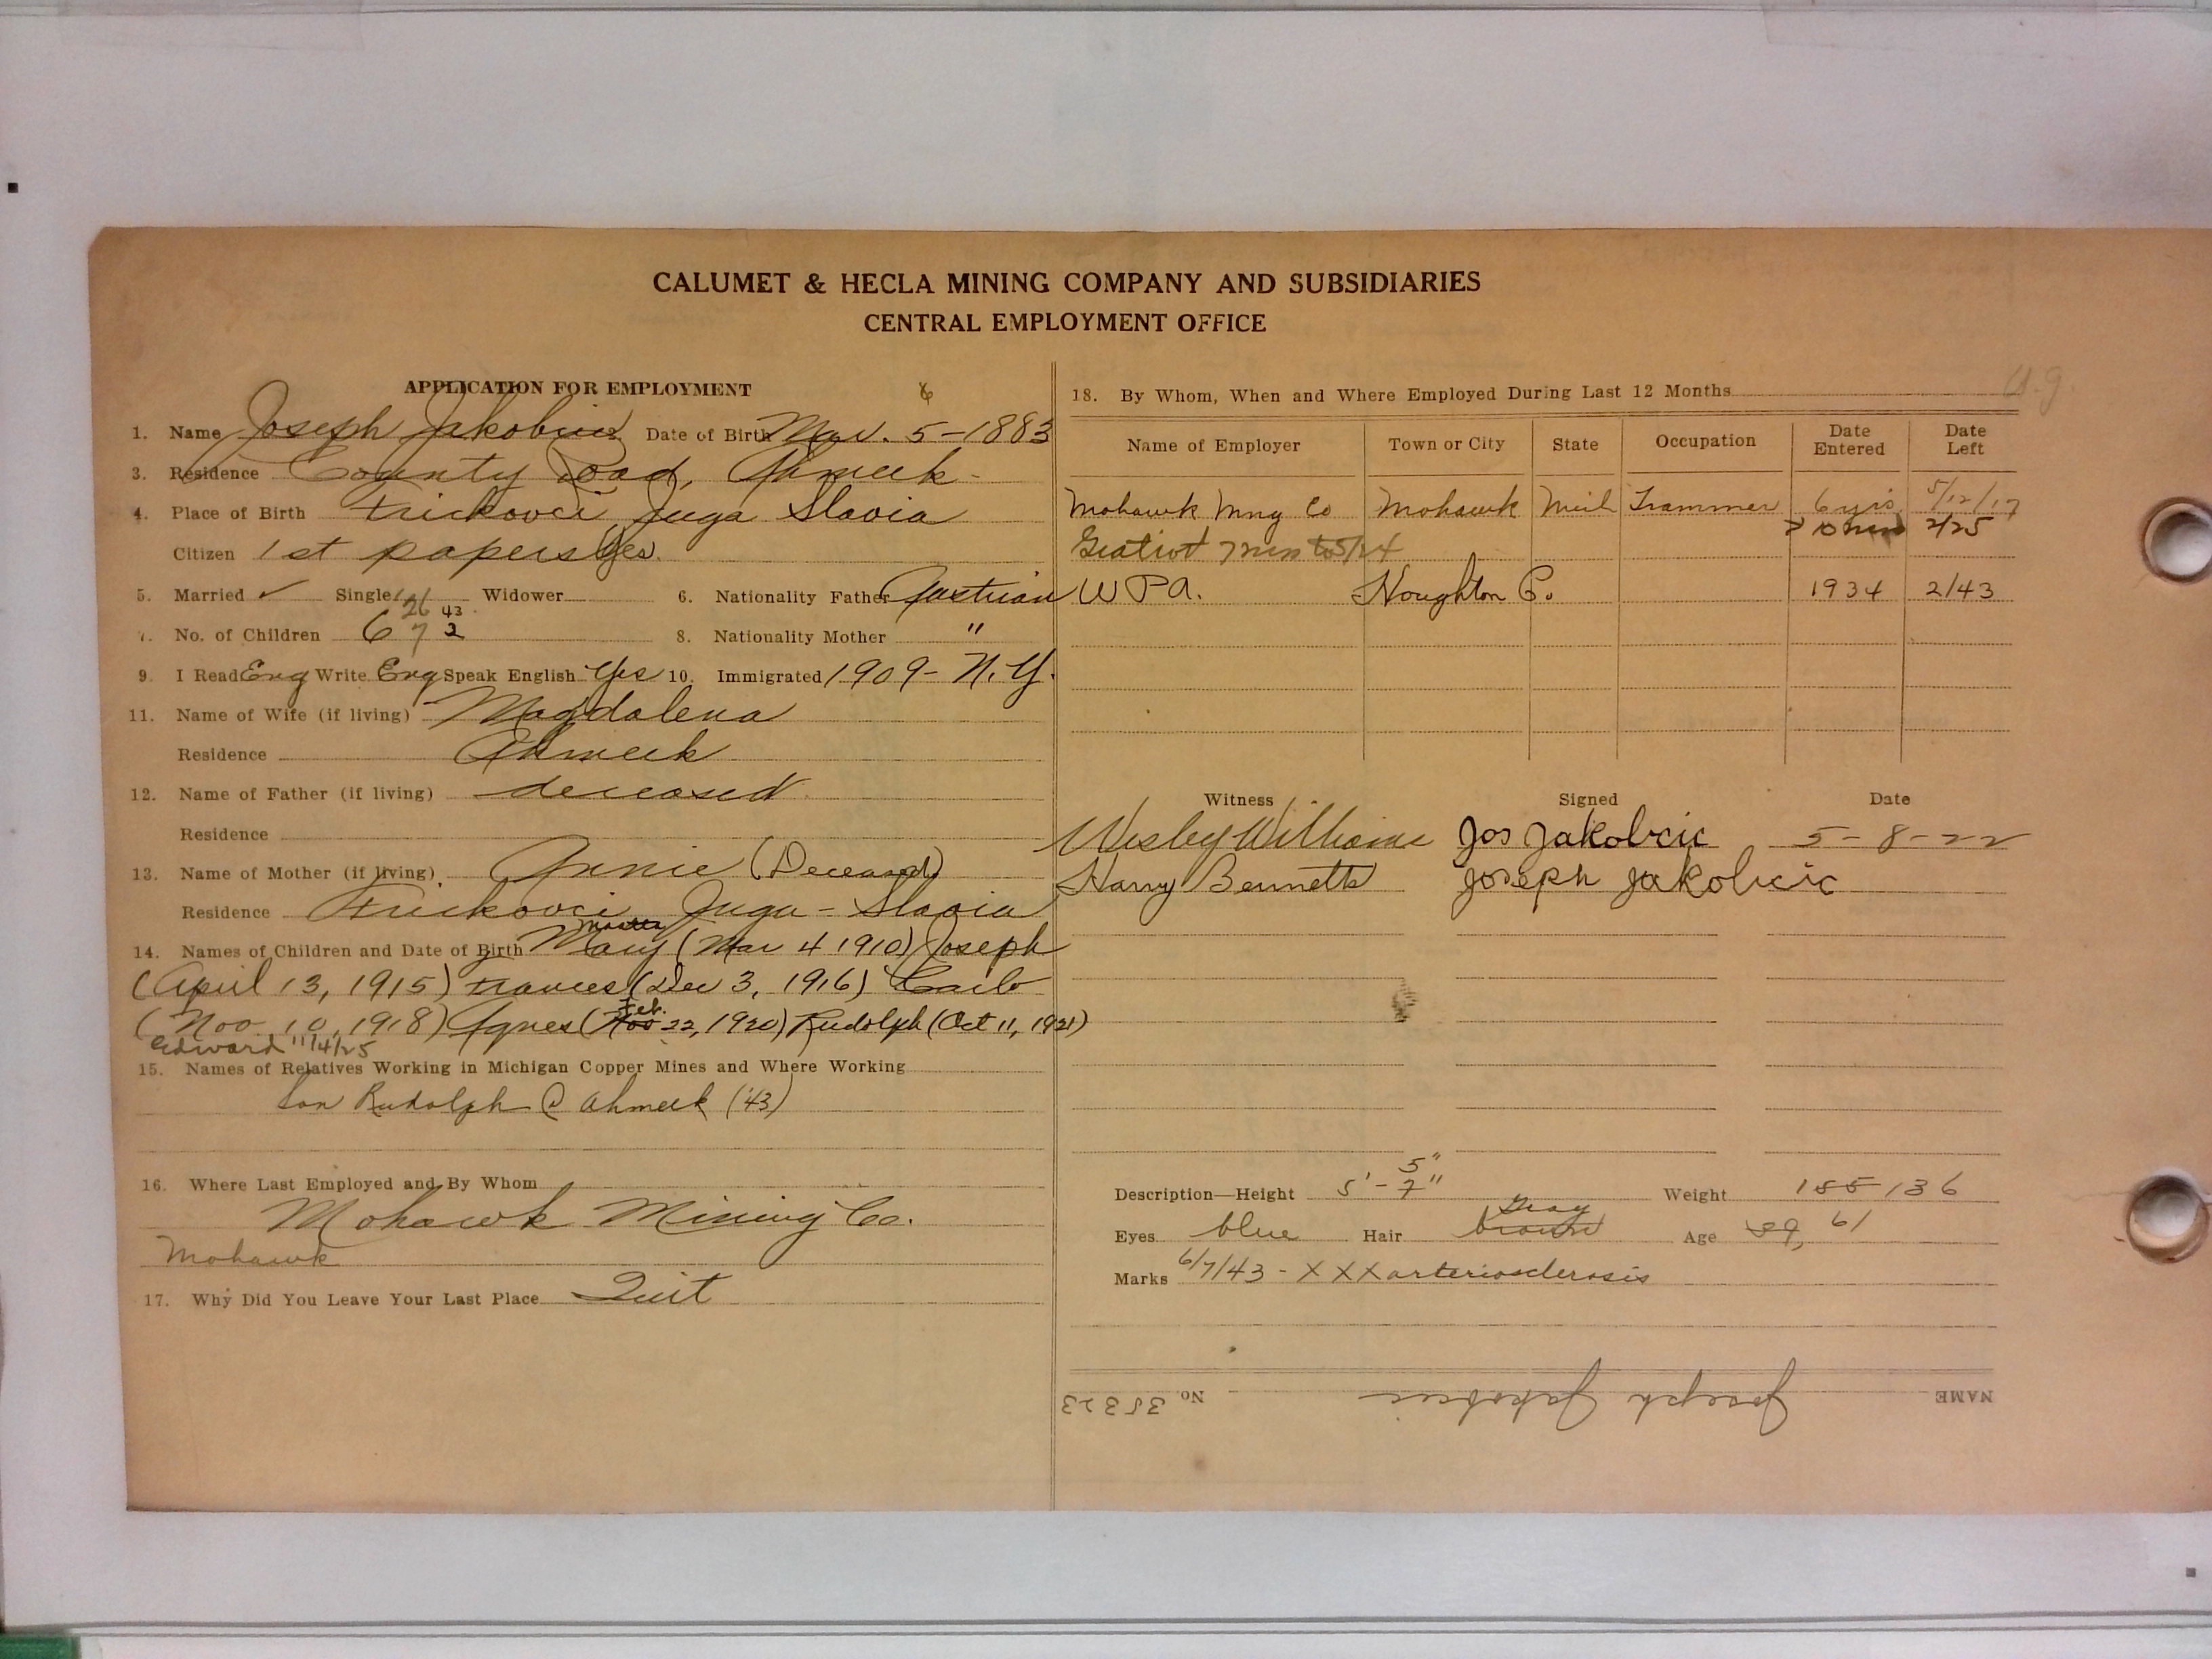 CALUMET & HECLA MINING COMPANY AND SUBSIDIARIES
CENTRAL EMPLOYMENT OFFICE
APPLICATION FOR EMPLOYMENT
1. Name Joseph Jakobcic Date of Birth Mar. 5-1883
3. Residence County Road, Ahmeek
4. Place of Birth Frickovci Juga Slavia
Citizen 1st papers Yes.
5. Married ✓ Single Widower 6. Nationality Father Austrian
7. No. of Children 6 7 2
26 43
8. Nationality Mother "
9. I Read Eng Write Eng Speak English Yes 10. Immigrated 1909- N.Y.
11. Name of Wife (if living) Magdalena
Residence Ahmeek
12. Name of Father (if living) deceased
Residence
13. Name of Mother (if living) Annie (Deceased)
Residence Frickovci Juga-Slavia
14. Names of Children and Date of Birth Mary (Mar 4 1910) Joseph
(April 13, 1915) Frances (Dec 3, 1916)
(Nov 10, 1918) Agnes (Nov Feb. 22, 1920) Rudolph (Oct 11, 1921)
Edward 11/4/25
15. Names of Relatives Working in Michigan Copper Mines and Where Working
Son Rudolph @ Ahmeek ('43)
16. Where Last Employed and By Whom
Mohawk Mining Co.
Mohawk
17. Why Did You Leave Your Last Place Quit
18. By Whom, When and Where Employed During Last 12 Months
Name of Employer Town or City State Occupation Date Entered Date Left
Mohawk Mng Co Mohawk Mich Trammer 6 yrs 5/12/17
2/25
Gratiot 7 mos to 5/24
WPA. Houghton Co. 1934 2/43
Witness Signed Date
Wesley Williams Jos Jakobcic 5-8-22
Harry Bennetts Joseph Jakobcic
Description—Height 5'-7" 5" Weight 155 136
Eyes blue Hair brown Gray Age 39, 61
Marks 6/7/43 - XXX arteriosclerosis
NAME Joseph Jakobcic No. 35323